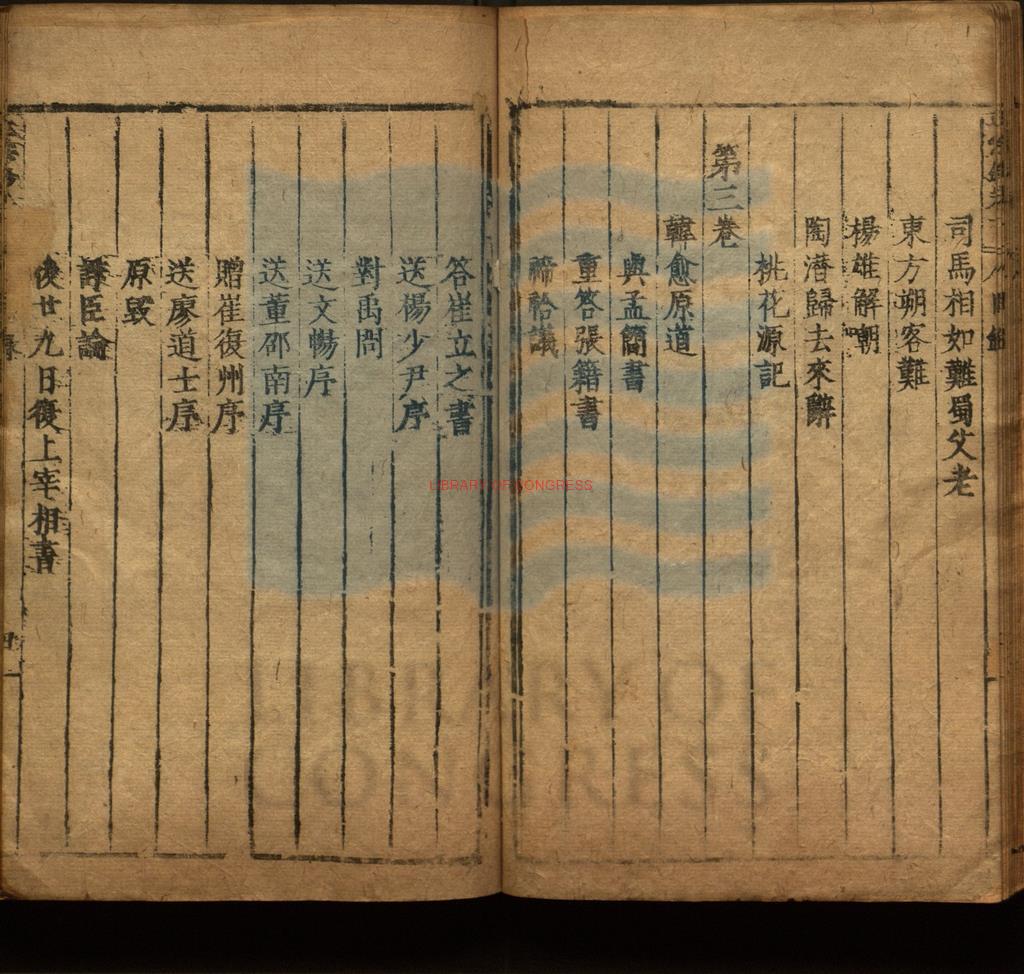 司馬相如難蜀父老
東方朔客難
楊雄解嘲
陶潛歸去來辭
桃花源記
第三卷
韓愈原道
與孟簡書
重答張籍書
禘祫議
答崔立之書
送楊少尹序
對禹問
送文暢序
送董邵南序
贈崔復州序
送廖道士序
原毀
諍臣論
後廿九日復上宰相書
LIBRARY OF CONGRESS